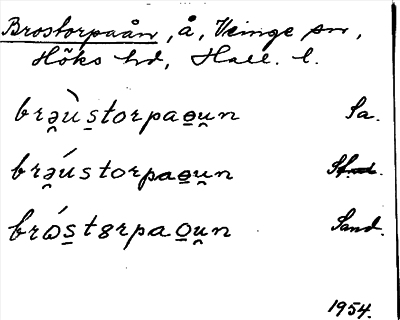 Brostorpaån, å, Veinge sn,
Höks hd, Hall. l.
brə̯ùs̱torpao̱u̯n Sa.
brə̯ústorpao̱u̯n
brɷ́s̱tɐrpao̱u̯n Sand.
1954.